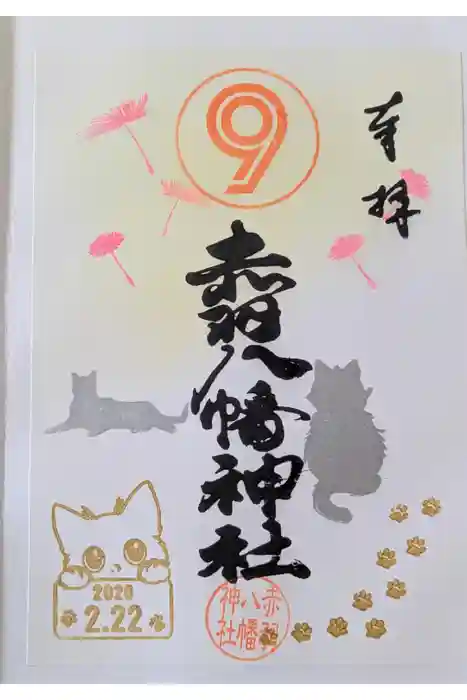 奉拝
9
赤羽八幡神社
2020
2.22
赤羽八幡神社